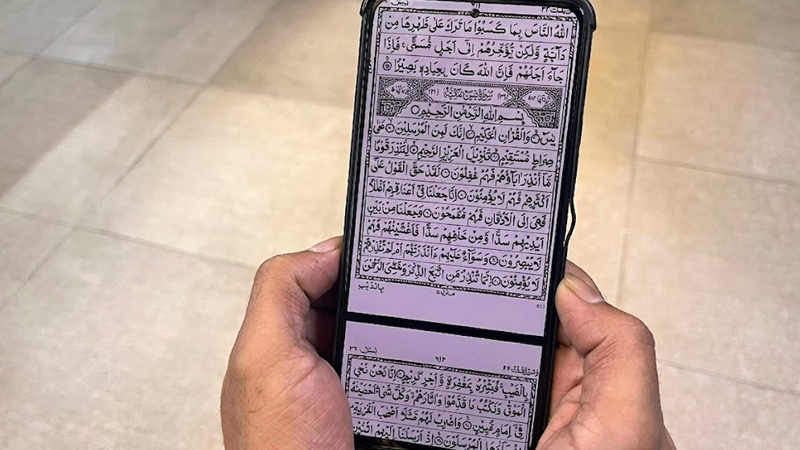 اللهُ النَّاسَ بِمَا كَسَبُوْا مَا تَرَكَ عَلٰى ظَهْرِهَا مِنْ
دَآبَّةٍ وَّلٰكِنْ يُّؤَخِّرُهُمْ اِلٰٓى اَجَلٍ مُّسَمًّى ۚ فَاِذَا
جَآءَ اَجَلُهُمْ فَاِنَّ اللهَ كَانَ بِعِبَادِهٖ بَصِيْرًا
بِسْمِ اللهِ الرَّحْمٰنِ الرَّحِيْمِ
يٰسٓ وَالْقُرْاٰنِ الْحَكِيْمِ اِنَّكَ لَمِنَ الْمُرْسَلِيْنَ عَلٰى
صِرَاطٍ مُّسْتَقِيْمٍ تَنْزِيْلَ الْعَزِيْزِ الرَّحِيْمِ لِتُنْذِرَ قَوْمًا
مَّآ اُنْذِرَ اٰبَآؤُهُمْ فَهُمْ غٰفِلُوْنَ لَقَدْ حَقَّ الْقَوْلُ عَلٰٓى
اَكْثَرِهِمْ فَهُمْ لَا يُؤْمِنُوْنَ اِنَّا جَعَلْنَا فِيْٓ اَعْنَاقِهِمْ اَغْلٰلًا
فَهِيَ اِلَى الْاَذْقَانِ فَهُمْ مُّقْمَحُوْنَ وَجَعَلْنَا مِنْۢ بَيْنِ
اَيْدِيْهِمْ سَدًّا وَّمِنْ خَلْفِهِمْ سَدًّا فَاَغْشَيْنٰهُمْ فَهُمْ
لَا يُبْصِرُوْنَ وَسَوَآءٌ عَلَيْهِمْ ءَاَنْذَرْتَهُمْ اَمْ لَمْ تُنْذِرْهُمْ
لَا يُؤْمِنُوْنَ اِنَّمَا تُنْذِرُ مَنِ اتَّبَعَ الذِّكْرَ وَخَشِيَ الرَّحْمٰنَ
بِالْغَيْبِ
بِالْغَيْبِ ۚ فَبَشِّرْهُ بِمَغْفِرَةٍ وَّاَجْرٍ كَرِيْمٍ اِنَّا نَحْنُ نُحْيِ
الْمَوْتٰى وَنَكْتُبُ مَا قَدَّمُوْا وَاٰثَارَهُمْ ۚ وَكُلَّ شَيْءٍ اَحْصَيْنٰهُ
فِيْٓ اِمَامٍ مُّبِيْنٍ وَاضْرِبْ لَهُمْ مَّثَلًا اَصْحٰبَ الْقَرْيَةِ
اِذْ جَآءَهَا الْمُرْسَلُوْنَ اِذْ اَرْسَلْنَآ اِلَيْهِمُ اثْنَيْنِ